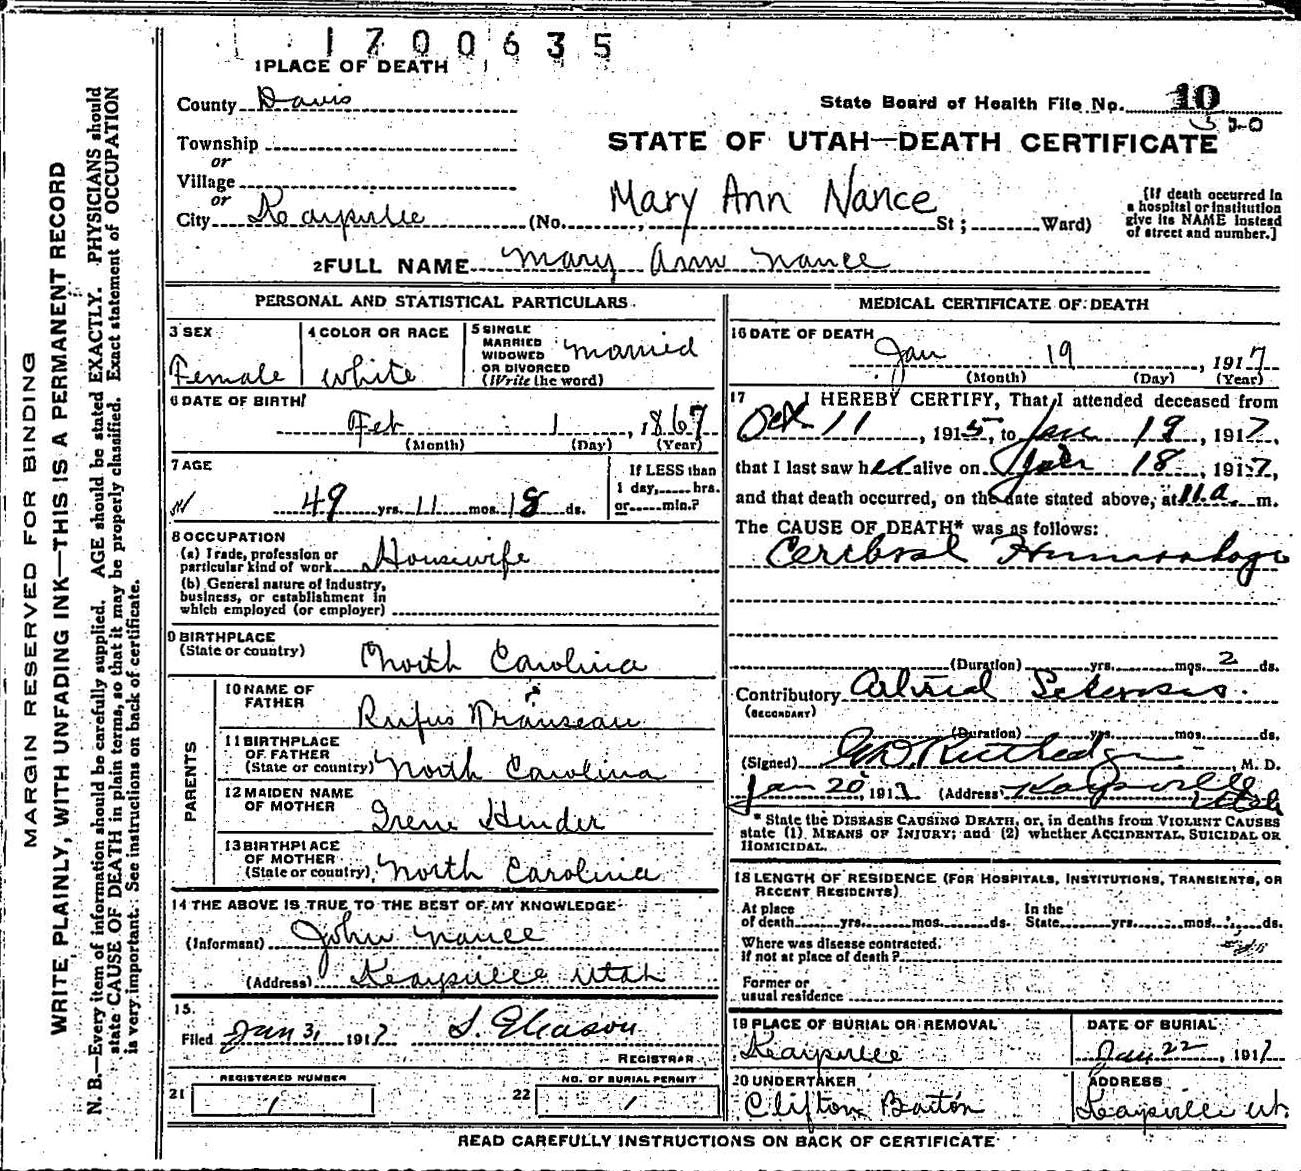 1700635
1 PLACE OF DEATH
County Davis
State Board of Health File No. 10
20
Township
or
Village
or
City Kaysville (No. , St ; Ward)
STATE OF UTAH—DEATH CERTIFICATE
Mary Ann Nance
[If death occurred in
a hospital or institution
give its NAME instead
of street and number.]
2 FULL NAME Mary Ann Nance
PERSONAL AND STATISTICAL PARTICULARS
3 SEX
Female
4 COLOR OR RACE
White
5 SINGLE
MARRIED
WIDOWED
OR DIVORCED
(Write the word)
Married
6 DATE OF BIRTH
Feb 1, 1867
(Month) (Day) (Year)
7 AGE
49 yrs. 11 mos. 18 ds.
If LESS than
1 day, hrs.
or min.?
8 OCCUPATION
(a) Trade, profession or
particular kind of work Housewife
(b) General nature of industry,
business, or establishment in
which employed (or employer)
9 BIRTHPLACE
(State or country) North Carolina
PARENTS
10 NAME OF
FATHER Rufus Transeau
11 BIRTHPLACE
OF FATHER
(State or country) North Carolina
12 MAIDEN NAME
OF MOTHER Irene Hinder
13 BIRTHPLACE
OF MOTHER
(State or country) North Carolina
14 THE ABOVE IS TRUE TO THE BEST OF MY KNOWLEDGE
(Informant) John Nance
(Address) Kaysville Utah
15.
Filed Jan 31 1917 S. Gleason
REGISTRAR
21 REGISTERED NUMBER
1
22 NO. OF BURIAL PERMIT
1
MEDICAL CERTIFICATE OF DEATH
16 DATE OF DEATH
Jan 19, 1917
(Month) (Day) (Year)
17 I HEREBY CERTIFY, That I attended deceased from
Oct 11, 1915, to Jan 19, 1917,
that I last saw her alive on Jan 18, 1917,
and that death occurred, on the date stated above, at 11 a m.
The CAUSE OF DEATH* was as follows:
Cerebral Hemorrhage
(Duration) yrs. mos. 2 ds.
Contributory Arterial Sclerosis
(SECONDARY)
(Duration) yrs. mos. ds.
(Signed) G D Rutledge, M. D.
Jan 20, 1917 (Address) Kaysville
Utah
* State the DISEASE CAUSING DEATH, or, in deaths from VIOLENT CAUSES
state (1) MEANS OF INJURY; and (2) whether ACCIDENTAL, SUICIDAL OR
HOMICIDAL.
18 LENGTH OF RESIDENCE (FOR HOSPITALS, INSTITUTIONS, TRANSIENTS, OR
RECENT RESIDENTS)
At place
of death yrs. mos. ds.
In the
State yrs. mos. ds.
Where was disease contracted.
if not at place of death?
Former or
usual residence
19 PLACE OF BURIAL OR REMOVAL
Kaysville
DATE OF BURIAL
Jan 22, 1917
20 UNDERTAKER
Clifton Barton
ADDRESS
Kaysville Ut.
READ CAREFULLY INSTRUCTIONS ON BACK OF CERTIFICATE
MARGIN RESERVED FOR BINDING
WRITE PLAINLY, WITH UNFADING INK—THIS IS A PERMANENT RECORD
N. B.—Every item of information should be carefully supplied. AGE should be stated EXACTLY. PHYSICIANS should
state CAUSE OF DEATH in plain terms, so that it may be properly classified. Exact statement of OCCUPATION
is very important. See instructions on back of certificate.